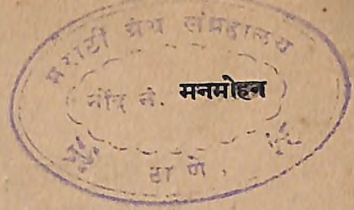 मराठी ग्रंथ संग्रहालय
नोंद नं. मनमोहन
ठाणे.